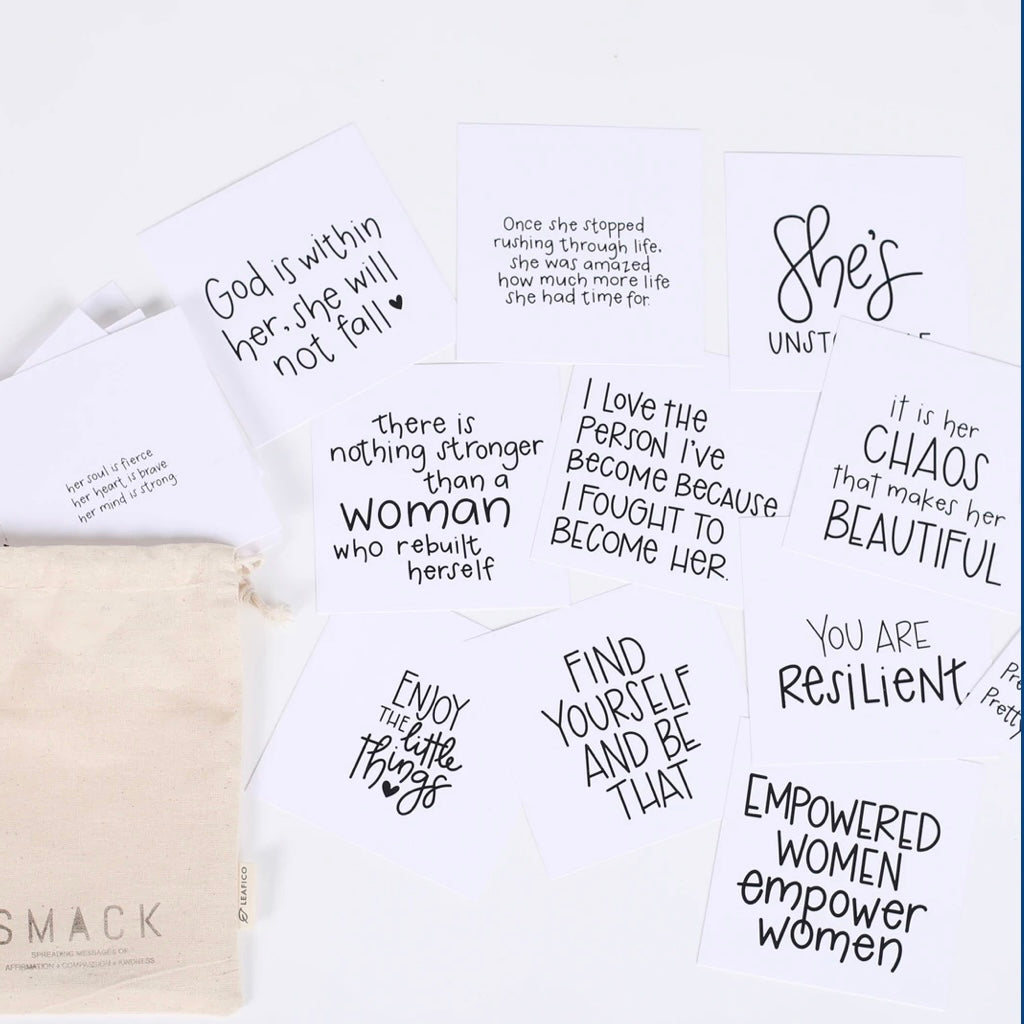 God is within
her, she will
not fall
Once she stopped
rushing through life,
she was amazed
how much more life
she had time for.
She's
her soul is fierce
her heart is brave
her mind is strong
there is
nothing stronger
than a
woman
who rebuilt
herself
I LOVE THE
PERSON I'VE
BECOME BECAUSE
I FOUGHT TO
BECOME HER.
it is her
CHAOS
that makes her
BEAUTIFUL
ENJOY
THE little
things
FIND
YOURSELF
AND BE
THAT
YOU ARE
RESILIENT.
Pretty
EMPOWERED
WOMEN
empower
women
SMACK
SPREADING MESSAGES OF
AFFIRMATION + COMPASSION + KINDNESS
LEAFICO